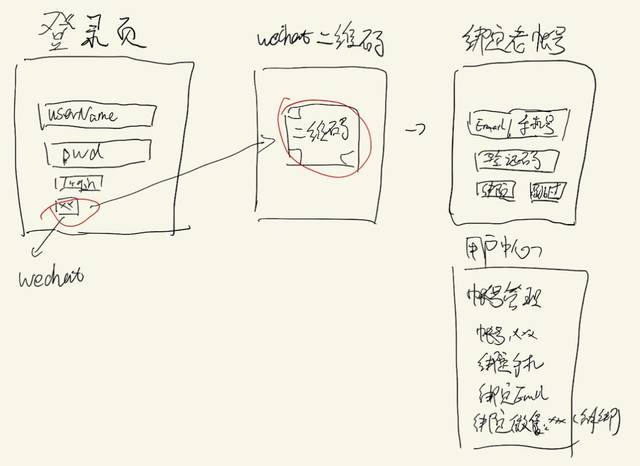 登录页
userName
pwd
login
xx
wechat
wechat 二维码
二维码
绑定老帐号
Email/手机号
验证码
绑定 跳过
用户中心
帐号管理
帐号:xxx
绑定手机
绑定Email
绑定微信:xx (解绑)